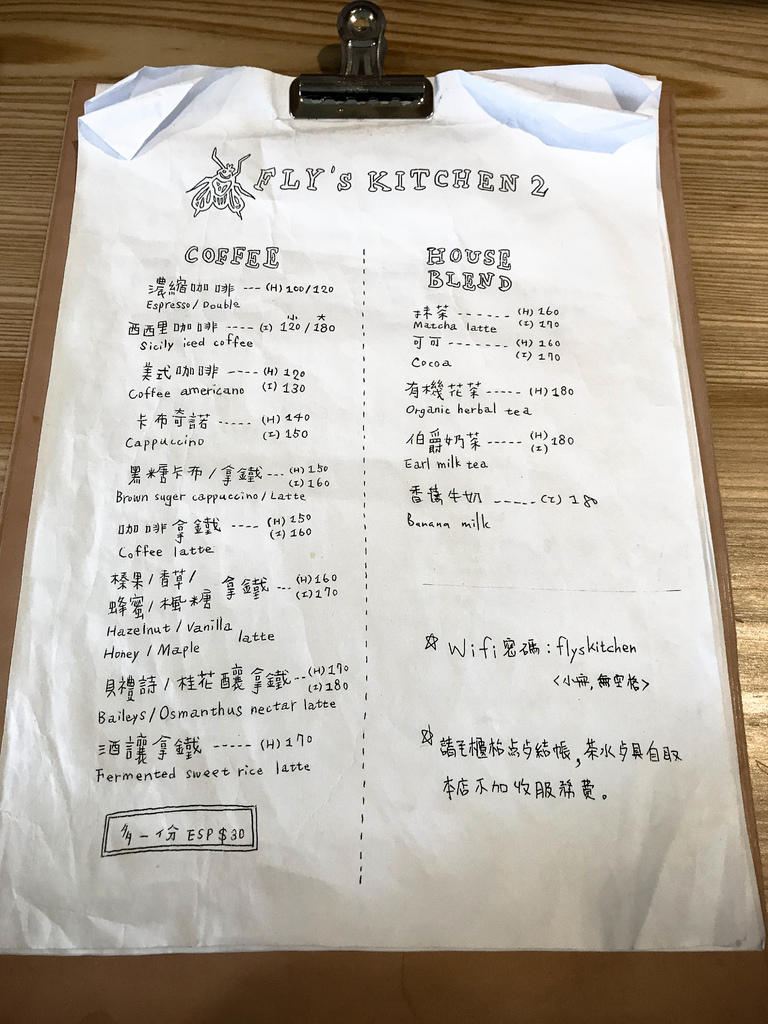 FLY'S KITCHEN 2
COFFEE
濃縮咖啡 --- (H) 100/120
Espresso/Double
小 大
西西里咖啡 ---- (I) 120/180
Sicily iced coffee
美式咖啡 ---- (H) 120
Coffee americano (I) 130
卡布奇諾 ----- (H) 140
Cappuccino (I) 150
黑糖卡布/拿鐵 --- (H) 150
(I) 160
Brown suger cappuccino/Latte
咖啡拿鐵 ---- (H) 150
(I) 160
Coffee latte
榛果/香草/
蜂蜜/楓糖 拿鐵 --- (H) 160
(I) 170
Hazelnut/Vanilla
Honey/Maple latte
貝禮詩/桂花釀拿鐵 -- (H) 170
(I) 180
Baileys/Osmanthus nectar latte
酒讓拿鐵 ----- (H) 170
Fermented sweet rice latte
加一份 ESP $30
HOUSE
BLEND
抹茶 ------- (H) 160
Matcha latte (I) 170
可可 -------- (H) 160
(I) 170
Cocoa
有機花茶 ----- (H) 180
Organic herbal tea
伯爵奶茶 ----- (H)
(I) 180
Earl milk tea
香蕉牛奶 ----- (I) 180
Banana milk
☆ Wifi密碼:flyskitchen
<小寫,無空格>
☆ 請至櫃枱点歺結帳,茶水歺具自取
本店不加收服務費。